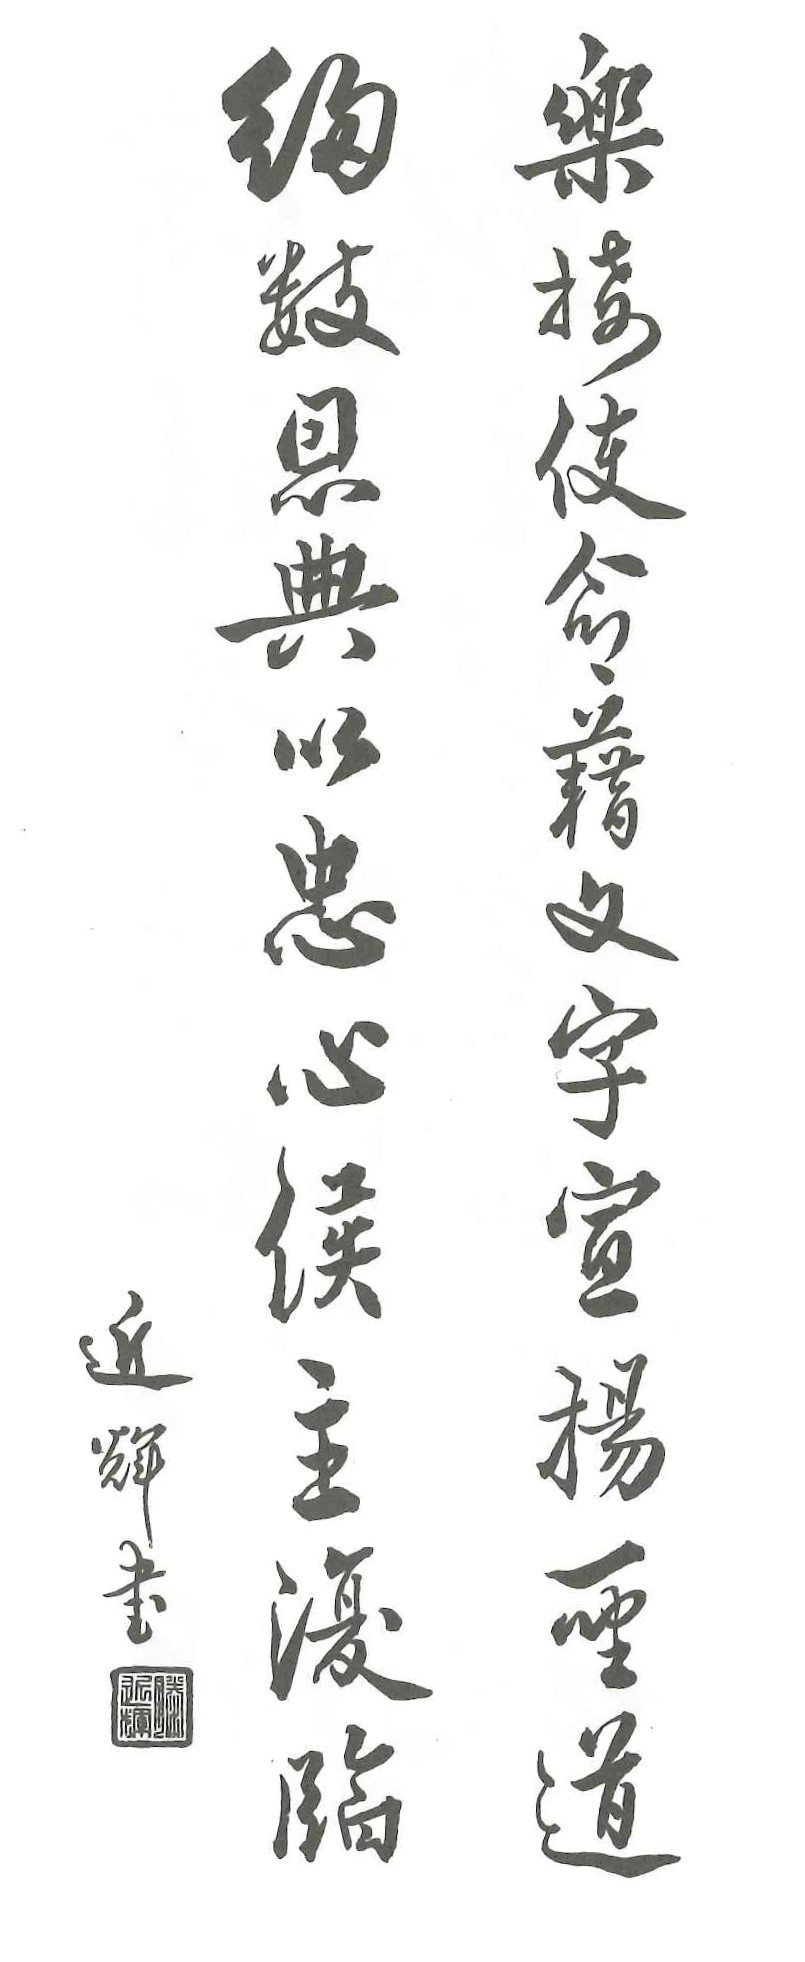 樂接使命藉文字宣揚聖道
細數恩典以忠心候主復臨
近輝書